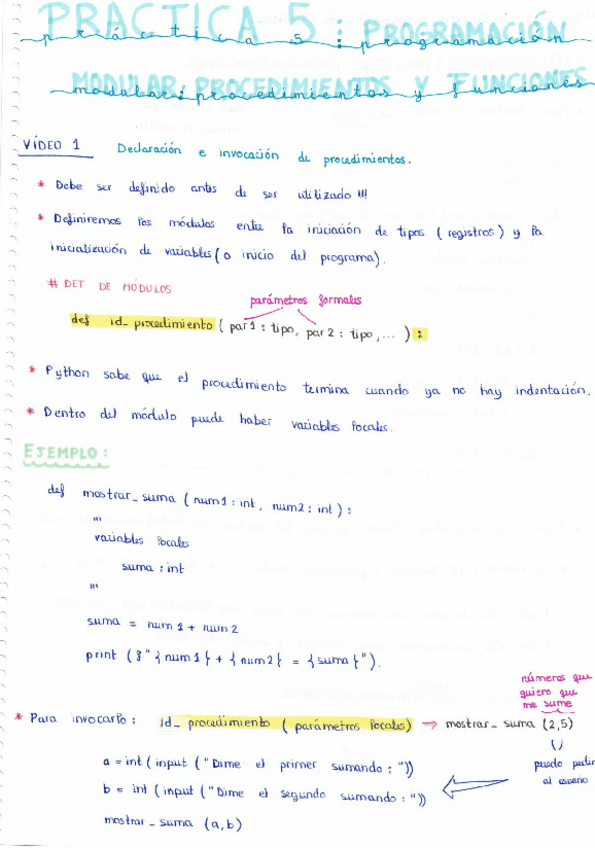 PRÁCTICA 5 : PROGRAMACIÓN
práctica 5 : programación
MODULAR: PROCEDIMIENTOS Y FUNCIONES
modular: procedimientos y funciones
VÍDEO 1 Declaración e invocación de procedimientos.
* Debe ser definido antes de ser utilizado !!!
* Definiremos los módulos entre la iniciación de tipos (registros) y la
inicialización de variables (o inicio del programa).
# DET DE MÓDULOS
parámetros formales
def id_procedimiento ( par 1 : tipo, par 2 : tipo, ... ) :
* Python sabe que el procedimiento termina cuando ya no hay indentación.
* Dentro del módulo puede haber variables locales.
EJEMPLO:
def mostrar_suma ( num1 : int, num2 : int ) :
'''
variables locales
suma : int
'''
suma = num 1 + num 2
print ( f" { num1 } + { num2 } = { suma }" ).
números que
quiero que
me sume
* Para invocarlo: id_procedimiento ( parámetros locales) → mostrar_suma (2,5)
a = int ( input ( "Dime el primer sumando : "))
puedo pedir
al usuario
b = int ( input ( "Dime el segundo sumando : "))
mostrar_suma (a, b)